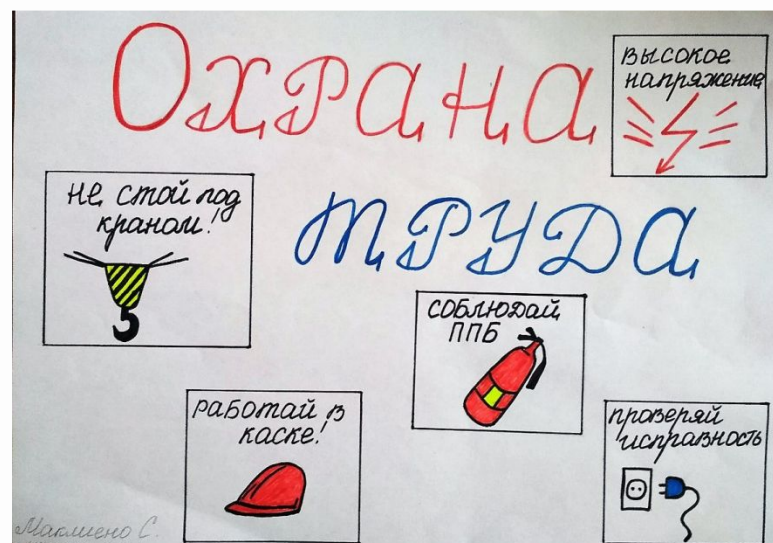 Охрана
высокое
напряжение
не стой под
краном!
труда
соблюдай
ППБ
работай в
каске!
проверяй
исправность